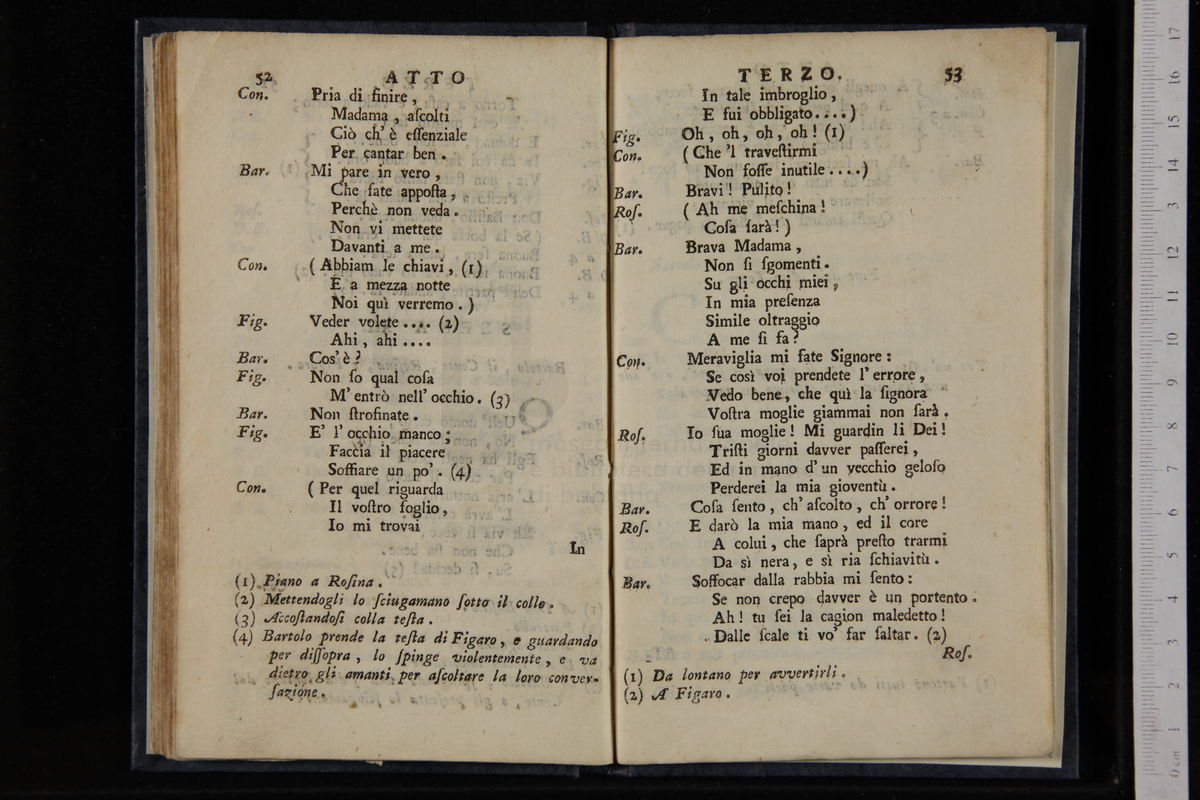 52 ATTO
Con. Pria di finire,
Madama, aſcolti
Ciò ch' è eſſenziale
Per cantar ben.
Bar. Mi pare in vero,
Che fate appoſta,
Perchè non veda.
Non vi mettete
Davanti a me.
Con. (Abbiam le chiavi, (1)
E a mezza notte
Noi quì verremo.)
Fig. Veder volete.... (2)
Ahi, ahi....
Bar. Cos' è?
Fig. Non ſo qual coſa
M' entrò nell' occhio. (3)
Bar. Non ſtrofinate.
Fig. E' l' occhio manco;
Faccia il piacere
Soffiare un po'. (4)
Con. (Per quel riguarda
Il voſtro foglio,
Io mi trovai
In
(1) Piano a Roſina.
(2) Mettendogli lo ſciugamano ſotto il collo.
(3) Accoſtandoſi colla teſta.
(4) Bartolo prende la teſta di Figaro, e guardando
per diſſopra, lo ſpinge violentemente, e va
dietro gli amanti per aſcoltare la loro conver-
ſazione.
TERZO. 53
In tale imbroglio,
E fui obbligato....)
Fig. Oh, oh, oh, oh! (1)
Con. (Che 'l traveſtirmi
Non foſſe inutile....)
Bar. Bravi! Pulito!
Roſ. (Ah me meſchina!
Coſa ſarà!)
Bar. Brava Madama,
Non ſi ſgomenti.
Su gli occhi miei,
In mia preſenza
Simile oltraggio
A me ſi fa?
Con. Meraviglia mi fate Signore:
Se così voi prendete l' errore,
Vedo bene, che quì la ſignora
Voſtra moglie giammai non ſarà.
Roſ. Io ſua moglie! Mi guardin li Dei!
Triſti giorni davver paſſerei,
Ed in mano d' un vecchio geloſo
Perderei la mia gioventù.
Bar. Coſa ſento, ch' aſcolto, ch' orrore!
Roſ. E darò la mia mano, ed il core
A colui, che ſaprà preſto trarmi
Da sì nera, e sì ria ſchiavitù.
Bar. Soffocar dalla rabbia mi ſento:
Se non crepo davver è un portento.
Ah! tu ſei la cagion maledetto!
Dalle ſcale ti vo' far ſaltar. (2)
Roſ.
(1) Da lontano per avvertirli.
(2) A Figaro.